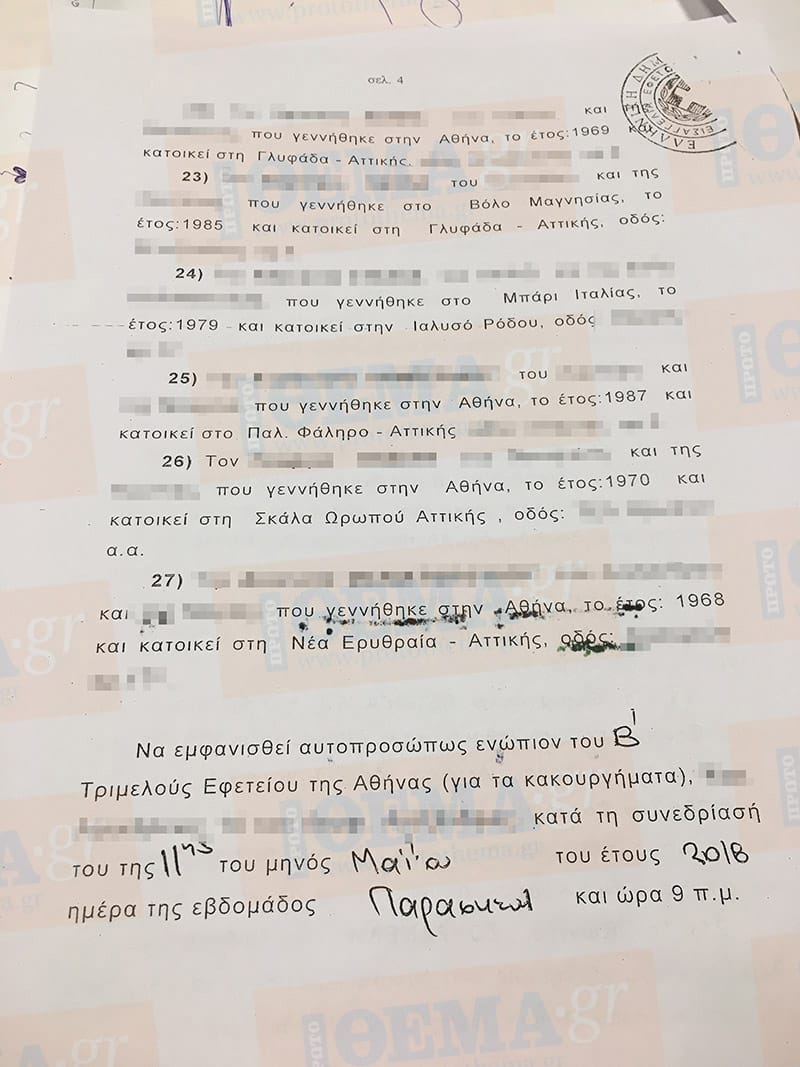 σελ. 4
και της
που γεννήθηκε στην Αθήνα, το έτος:1969 και
κατοικεί στη Γλυφάδα - Αττικής,
23) του και της
που γεννήθηκε στο Βόλο Μαγνησίας, το
έτος:1985 και κατοικεί στη Γλυφάδα - Αττικής, οδός:
24)
που γεννήθηκε στο Μπάρι Ιταλίας, το
έτος:1979 - και κατοικεί στην Ιαλυσό Ρόδου, οδός
25) του και
που γεννήθηκε στην Αθήνα, το έτος:1987 και
κατοικεί στο Παλ. Φάληρο - Αττικής
26) Τον και της
που γεννήθηκε στην Αθήνα, το έτος:1970 και
κατοικεί στη Σκάλα Ωρωπού Αττικής , οδός:
α.α.
27)
και που γεννήθηκε στην Αθήνα, το έτος: 1968
και κατοικεί στη Νέα Ερυθραία - Αττικής, οδός:
Να εμφανισθεί αυτοπροσώπως ενώπιον του Β'
Τριμελούς Εφετείου της Αθήνας (για τα κακουργήματα),
κατά τη συνεδρίασή
του της 11ης του μηνός Μαΐου του έτους 2018
ημέρα της εβδομάδος Παρασκευή και ώρα 9 π.μ.
ΠΡΩΤΟ ΘΕΜΑ.gr